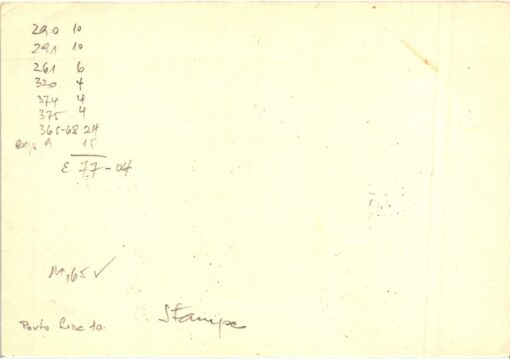 290 10
291 10
261 6
320 4
374 4
375 4
365-68 24
9 15
£ 77-04
,65 ✓
Stampe
Porto Lire 10.